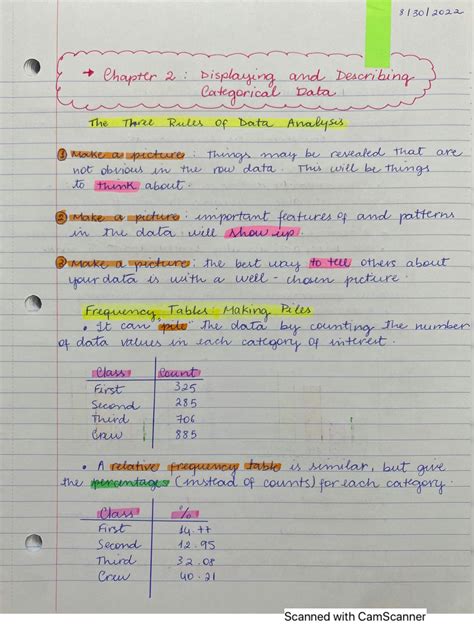 8/30/2022
→ Chapter 2 : Displaying and Describing
Categorical Data
The Three Rules of Data Analysis
① Make a picture : Things may be revealed that are
not obvious in the raw data. This will be things
to think about.
② Make a picture : important features of and patterns
in the data will show up.
③ Make a picture : the best way to tell others about
your data is with a well - chosen picture.
Frequency Tables : Making Piles
• It can "pile" the data by counting the number
of data values in each category of interest.
Class Count
First 325
Second 285
Third 706
Crew 885
• A relative frequency table is similar, but give
the percentages (instead of counts) for each category.
Class %
First 14.77
Second 12.95
Third 32.08
Crew 40.21
Scanned with CamScanner